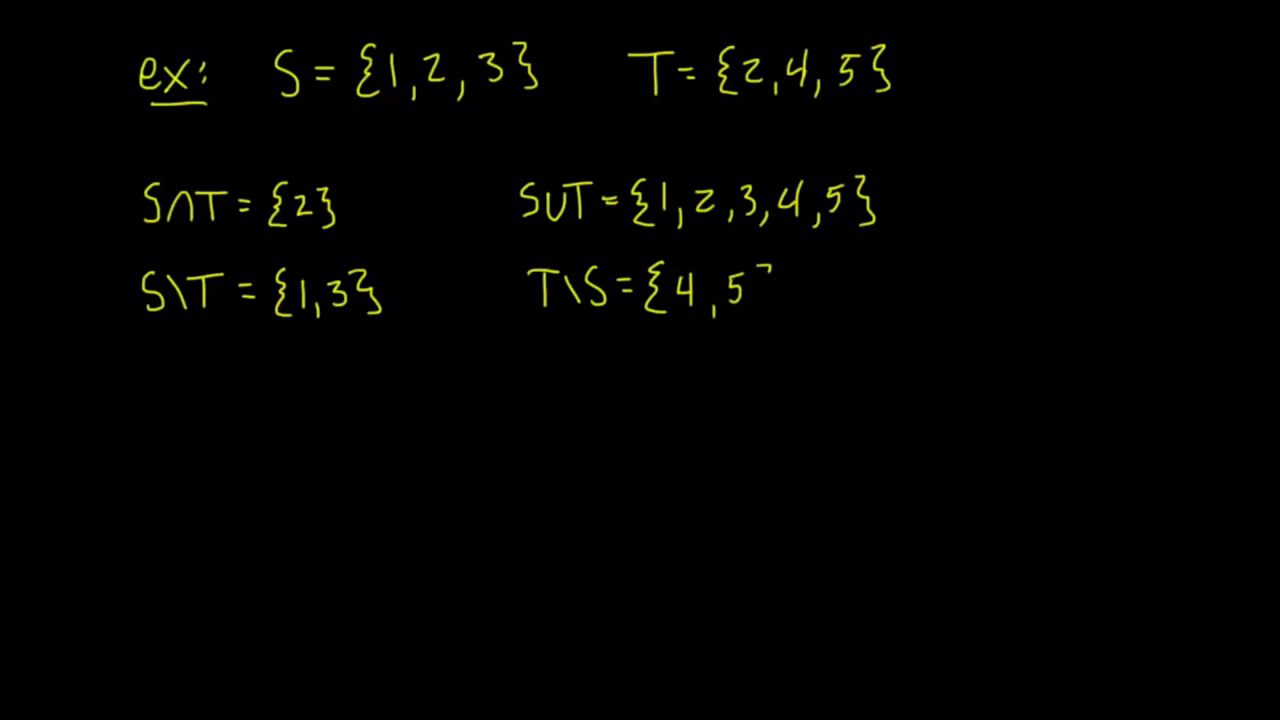 ex: S = {1, 2, 3} T = {2, 4, 5}
S∩T = {2} S∪T = {1, 2, 3, 4, 5}
S\T = {1, 3} T\S = {4, 5